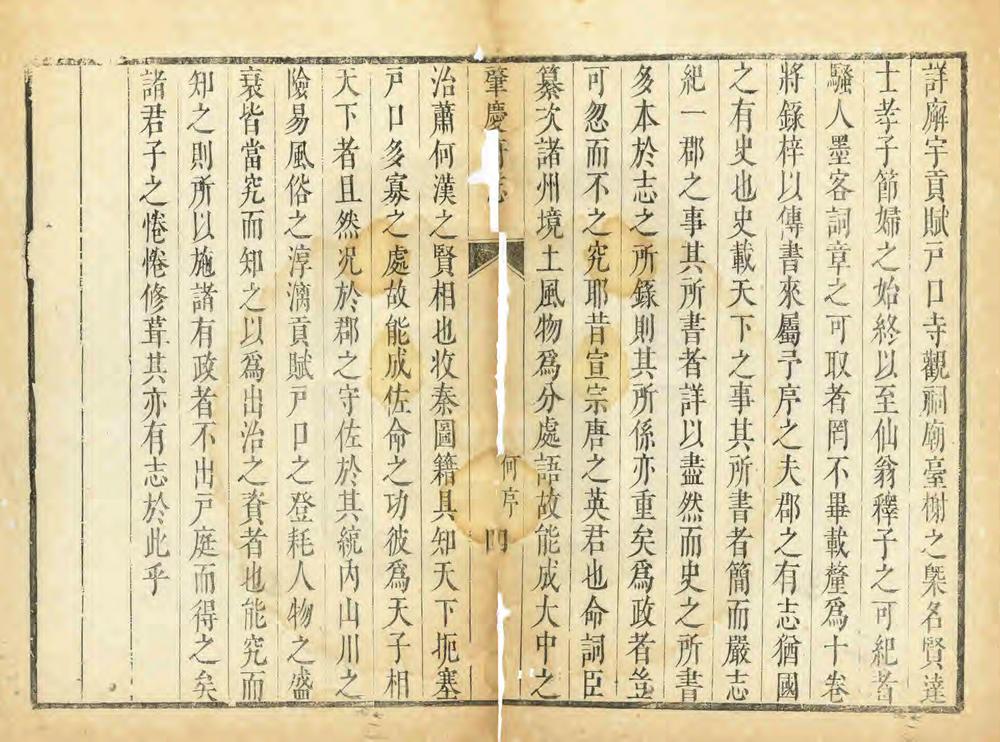 詳廨宇貢賦戸口寺觀祠廟臺榭之槩名賢達
士孝子節婦之始終以至仙翁釋子之可紀者
騷人墨客詞章之可取者罔不畢載釐爲十卷
將錄梓以傳書來屬予序之夫郡之有志猶國
之有史也史載天下之事其所書者簡而嚴志
紀一郡之事其所書者詳以盡然而史之所書
多本於志之所錄則其所係亦重矣爲政者豈
可忽而不之究耶昔宣宗唐之英君也命詞臣
纂次諸州境土風物爲分處語故能成大中之
肇慶府志
何序
四
治蕭何漢之賢相也收秦圖籍具知天下扼塞
戸口多寡之處故能成佐命之功彼爲天子相
天下者且然况於郡之守佐於其統内山川之
險易風俗之淳漓貢賦戸口之登耗人物之盛
衰皆當究而知之以爲出治之資者也能究而
知之則所以施諸有政者不出戸庭而得之矣
諸君子之惓惓修葺其亦有志於此乎